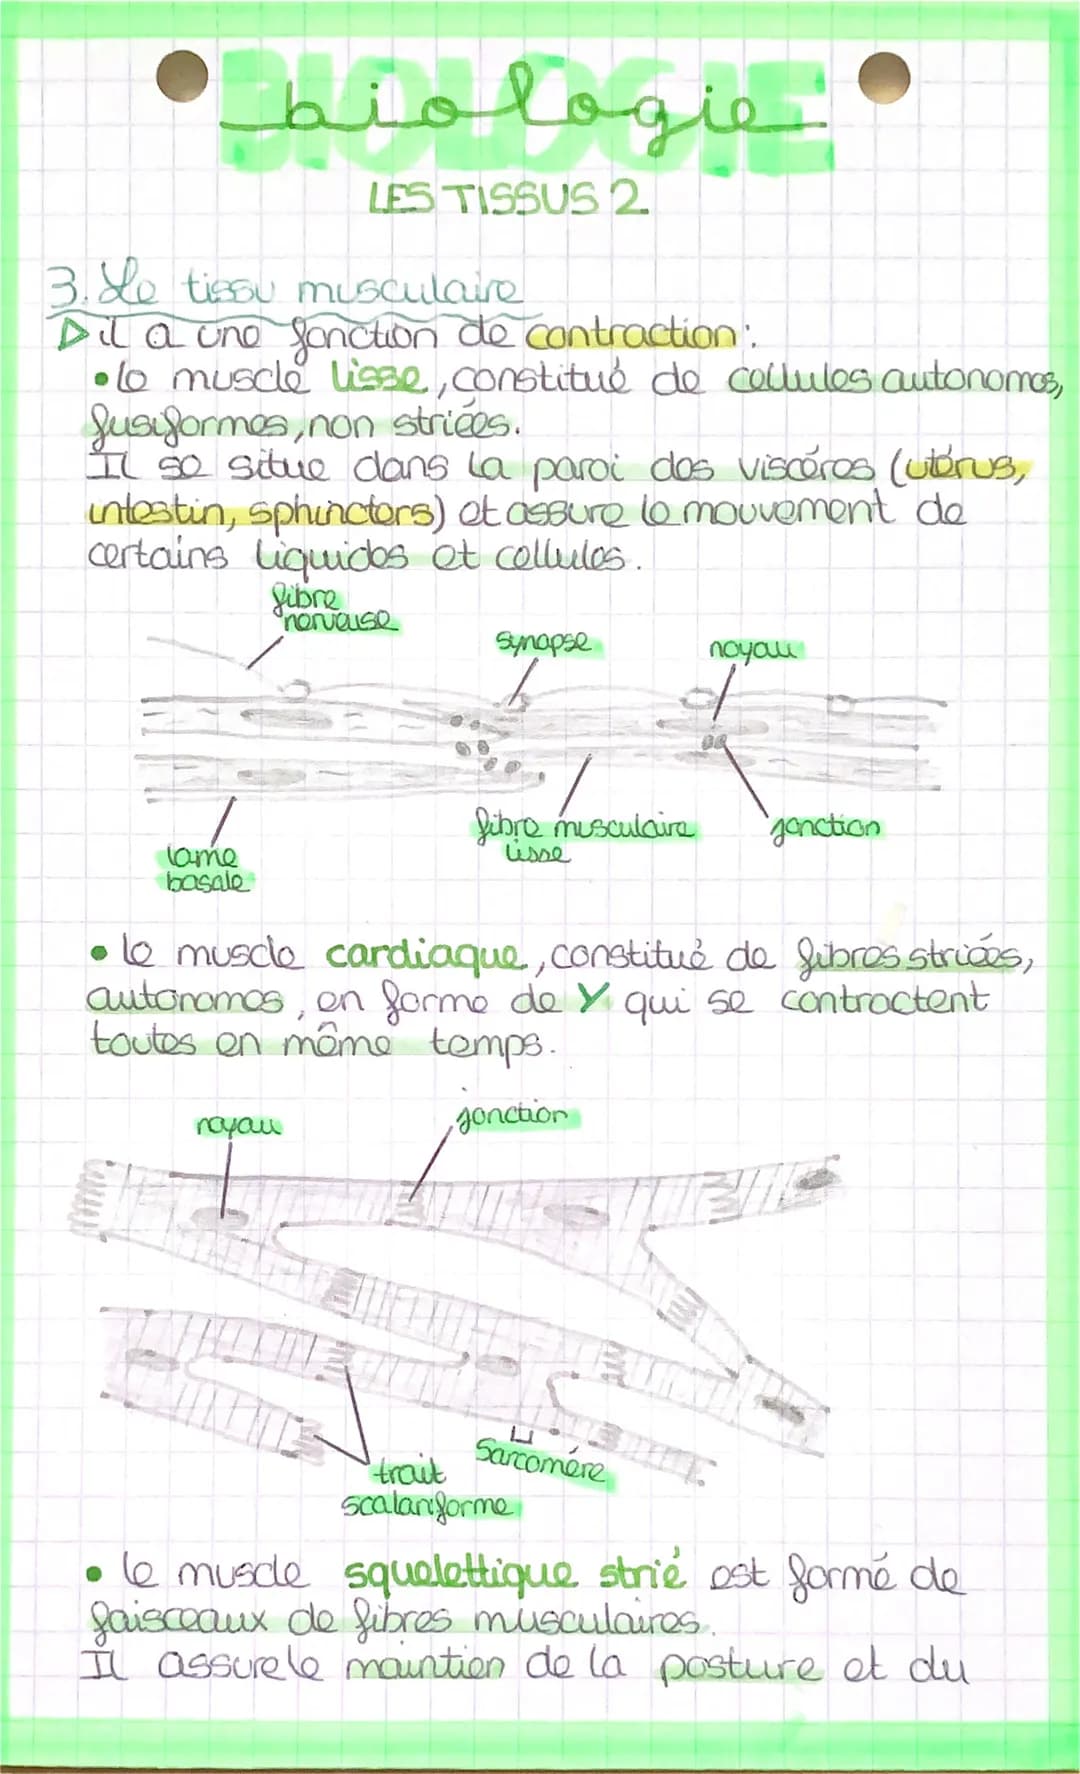 BIOLOGIE
biologie
LES TISSUS 2
3. Le tissu musculaire
▷ il a une fonction de contraction:
• le muscle lisse, constitué de cellules autonomes,
fusiformes, non striées.
Il se situe dans la paroi des viscères (utérus,
intestin, sphincters) et assure le mouvement de
certains liquides et cellules.
fibre
nerveuse
synapse
noyau
fibre musculaire
lisse
jonction
lame
basale
• le muscle cardiaque, constitué de fibres striées,
autonomes, en forme de Y qui se contractent
toutes en même temps.
noyau
jonction
trait
scalariforme
Sarcomère
• le muscle squelettique strié est formé de
faisceaux de fibres musculaires.
Il assure le maintien de la posture et du